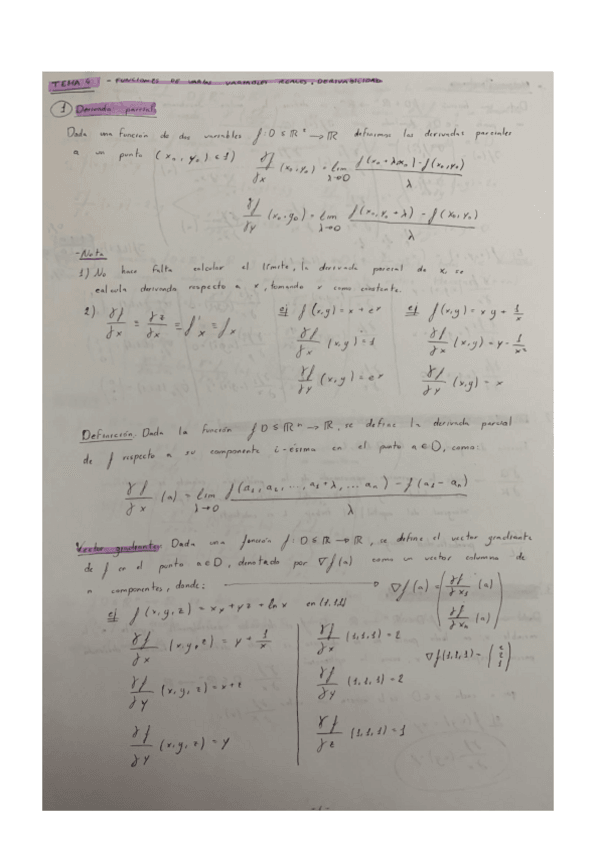 TEMA 4 - FUNCIONES DE VARIAS VARIABLES REALES, DERIVABILIDAD
1 Derivada parcial
Dada una función de dos variables f: D ⊆ ℝ² → ℝ definimos las derivadas parciales
a un punto (x₀, y₀) ∈ D) ∂f/∂x (x₀, y₀) = lim λ→0 f(x₀ + λ, y₀) - f(x₀, y₀) / λ
∂f/∂y (x₀, y₀) = lim λ→0 f(x₀, y₀ + λ) - f(x₀, y₀) / λ
- Nota
1) No hace falta calcular el límite, la derivada parcial de x, se
calcula derivando respecto a x, tomando y como constante.
2) ∂f/∂x = ∂z/∂x = f'x = fx ej f(x,y) = x + eʸ ej f(x,y) = xy + 1/x
∂f/∂x (x,y) = 1 ∂f/∂x (x,y) = y - 1/x²
∂f/∂y (x,y) = eʸ ∂f/∂y (x,y) = x
Definición. Dada la función f D ⊆ ℝⁿ → ℝ, se define la derivada parcial
de f respecto a su componente i-ésima en el punto a ∈ D, como:
∂f/∂x (a) = lim λ→0 f(a₁, a₂, ..., a₁ + λ, ... aₙ) - f(a₁ - aₙ) / λ
Vector gradiente: Dada una función f: D ⊆ ℝ → ℝ, se define el vector gradiente
de f en el punto a ∈ D, denotado por ∇f(a) como un vector columna de
n componentes, donde: → ∇f(a) = (∂f/∂x₁ (a) ∂f/∂xₙ (a))
ej f(x,y,z) = xy + yz + ln x en (1,1,1)
∂f/∂x (x,y,z) = y + 1/x ∂f/∂x (1,1,1) = 2 ∇f(1,1,1) = (2 2 1)
∂f/∂y (x,y,z) = x + z ∂f/∂y (1,1,1) = 2
∂f/∂y (x,y,z) = y ∂f/∂z (1,1,1) = 1